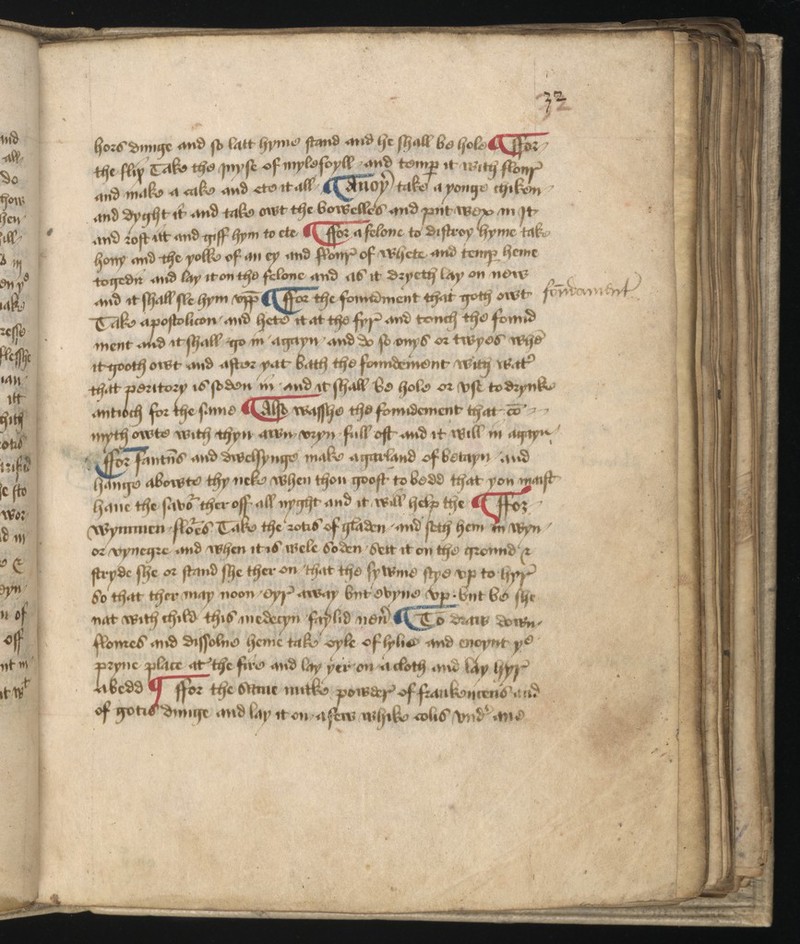 32
hors dunge and so latt hyme stand and he shall be hole ¶ ffor
the flix Take the juyse of mylefoyll and temp it with flour
and make a cake and ete it all ¶ Anoyr take a yonge chiken
and dyght it and take owt the bowelles and put wex in it
and rost itt and giff hym to ete ¶ ffor a felone to distroy hyme take
hony and the yolke of an ey and flour of whete and temp heme
togedir and lay it on the felone and as it dryeth lay on new
and it shall sle hym vpp ¶ ffor the foundment that goth owt
foundament
Take apostolicon and hete it at the fyr and touch the found
ment and it shall go in agayn and do so onys or twyes when
it gooth owt and after yat bath the foundement with watr
that peritory is soden in and it shall be hole or vse to drynke
antioch for the same ¶ Also wasshe the foundement that co
myth owte with thyn awn vryn full oft and it will in agayn
¶ ffor fantms and dwelsynge make a garland of betayn and
hange abowte thy neke when thou goost to bedd that you maist
haue the savor ther off all nyght and it will help the ¶ ffor
wymmen flores Take the rotis of gladen and seth hem in wyn
or vynegre and when it is wele soden sett it on the ground &
stryde she or stand she ther on that the fywme stye vp to hyr
so that ther may noon eyr away but evyne vp but be she
nat with child this medecyn faylid neuer ¶ To draw down
floures and dissolue heme take oyle of lylie and enoynt ye
pryue place at the fire and lay yer on a cloth and lay hyr
abedd ¶ ffor the same make powder of frankencens and
of gotis dunge and lay it on a few whike colis vnder and